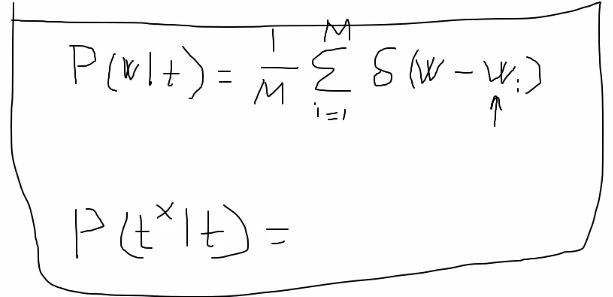 P(w|t) = 1/M ∑_{i=1}^{M} δ(w - w_i)
↑
P(t^x|t) =